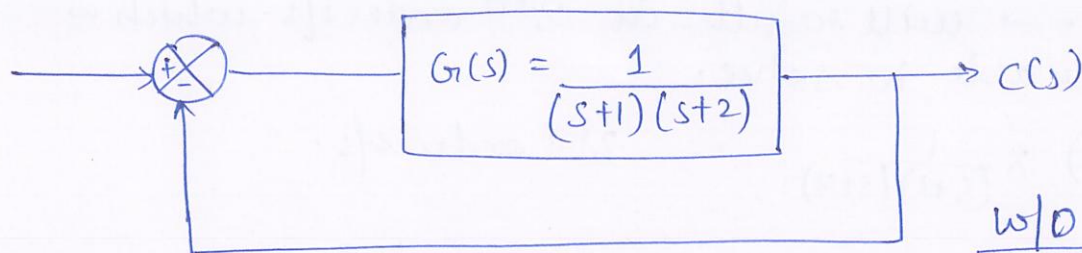 +
-
G(s) = 1
(s+1)(s+2)
C(s)
w/o